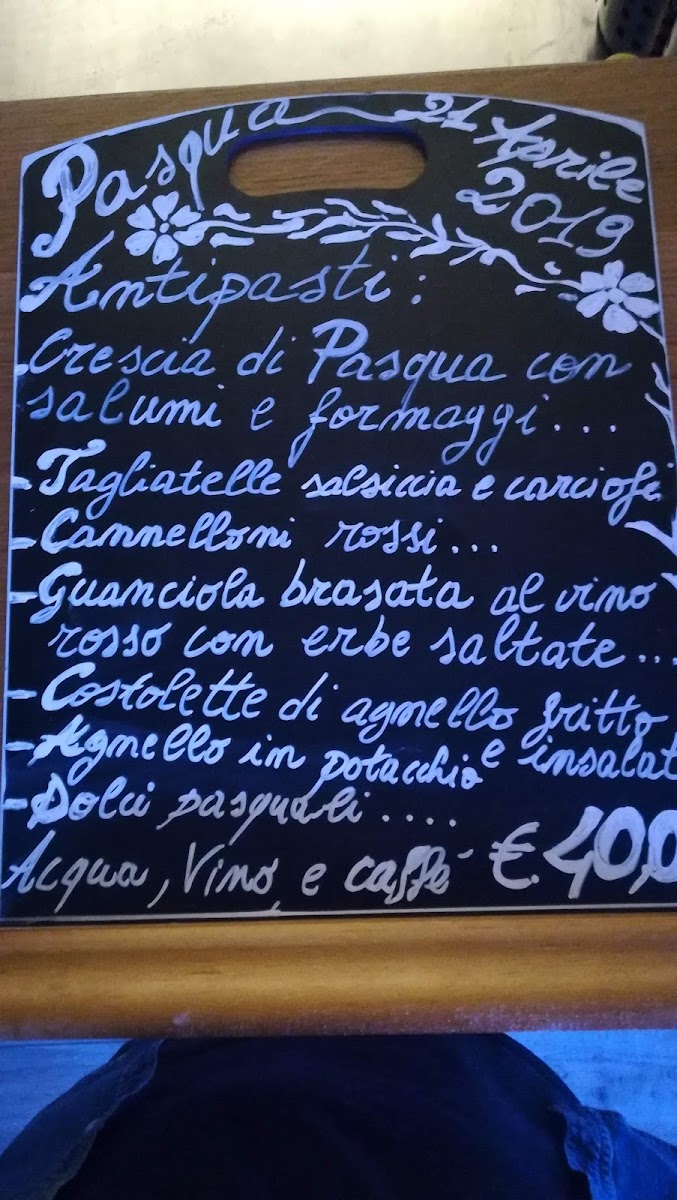 Pasqua 21 Aprile
2019
Antipasti:
Crescia di Pasqua con
salumi e formaggi...
- Tagliatelle salsiccia e carciofi
- Cannelloni rossi...
- Guanciola brasata al vino
rosso con erbe saltate...
- Costolette di agnello fritto
- Agnello in potacchio e insalat
- Dolci pasquali....
Acqua, Vino, e caffè €.40,0